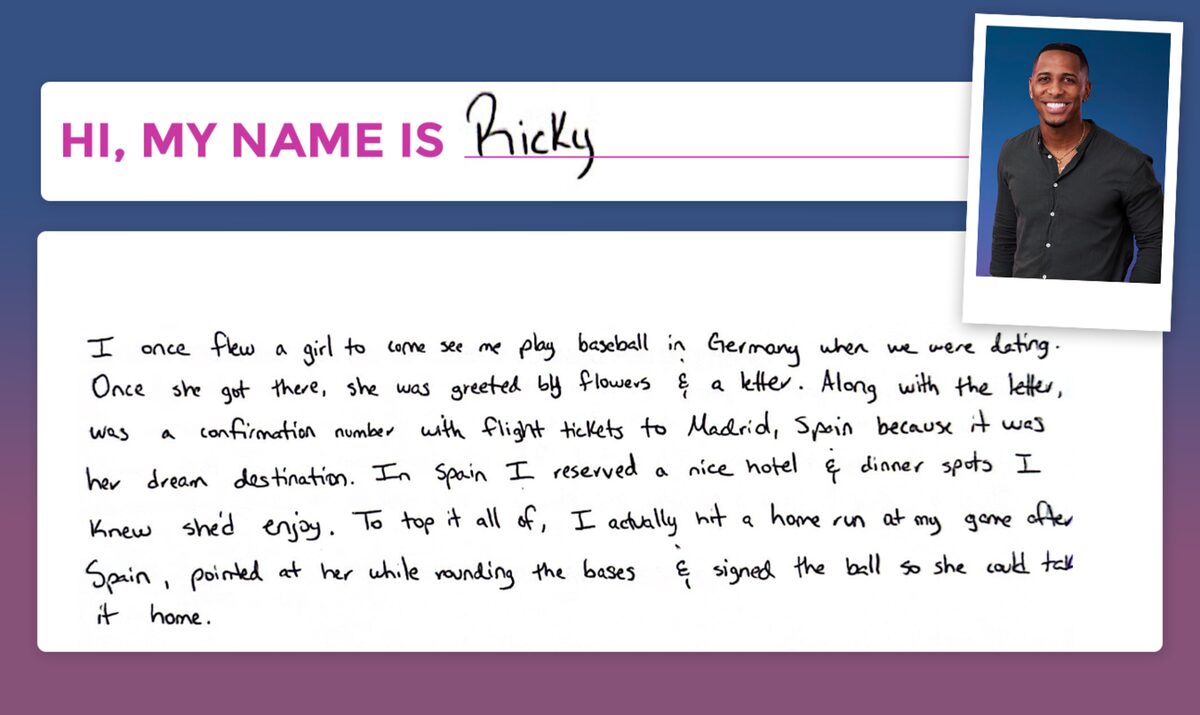 HI, MY NAME IS Ricky
I once flew a girl to come see me play baseball in Germany when we were dating.
Once she got there, she was greeted by flowers & a letter. Along with the letter,
was a confirmation number with flight tickets to Madrid, Spain because it was
her dream destination. In Spain I reserved a nice hotel & dinner spots I
knew she'd enjoy. To top it all of, I actually hit a home run at my game after
Spain, pointed at her while rounding the bases & signed the ball so she could tak
it home.